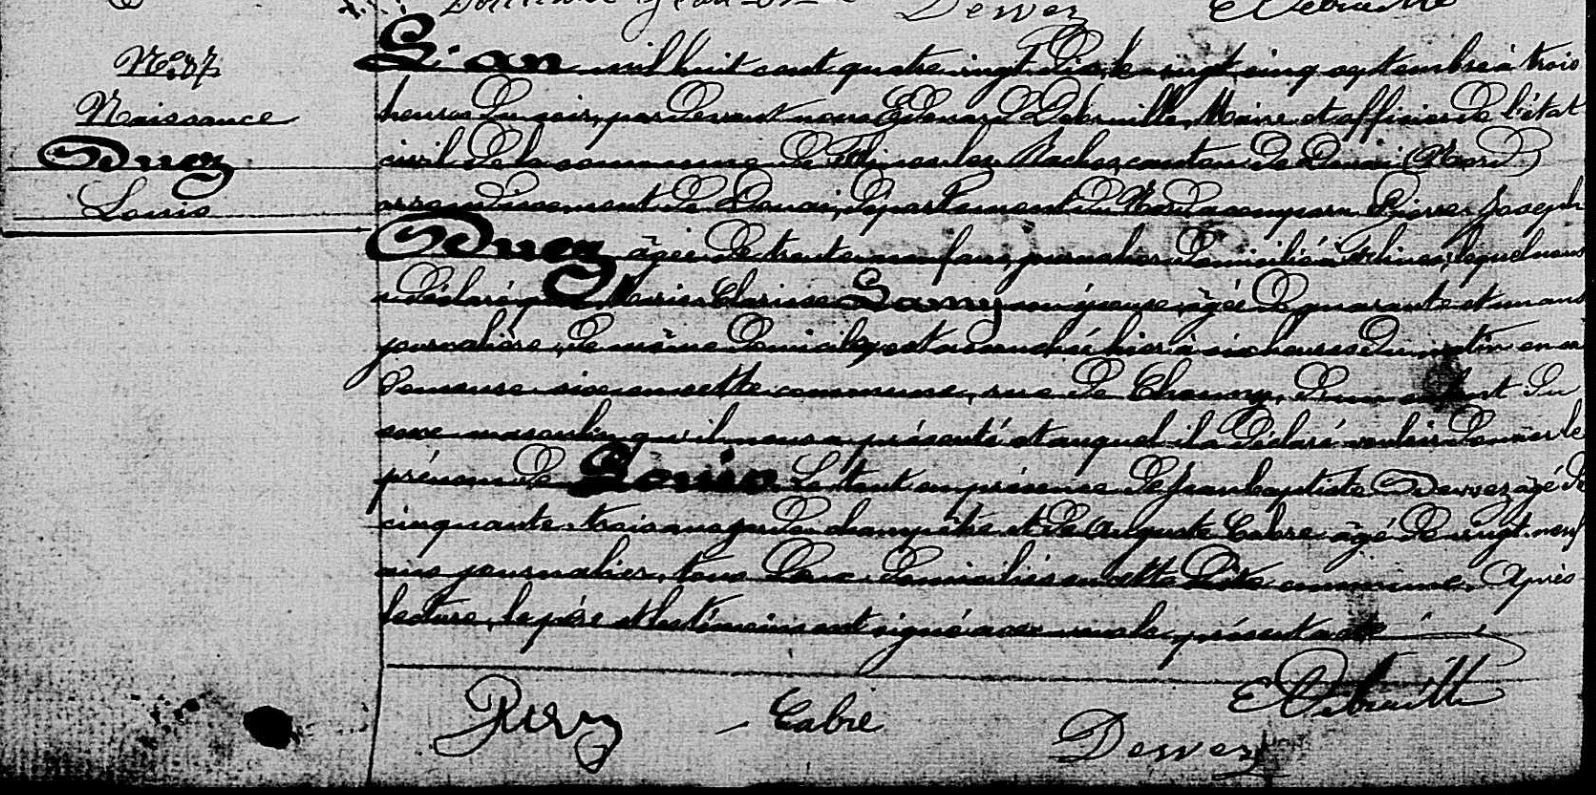 Dewez
EDebruille
N° 87
Naissance
Duez
Louis
L'an mil huit cent quatre vingt dix, le vingt cinq septembre à trois
heures du soir, par devant nous Edouard Debruille, Maire et officier de l'état
civil de la commune de Flines lez Raches, canton de Douai (Nord)
arrondissement de Douai, département du Nord a comparu Pierre Joseph
Duez âgé de trente neuf ans, journalier domicilié à Flines, lequel nous
a déclaré que Marie Clarisse Lamy son épouse, âgée de quarante et un ans
journalière, de même domicile, est accouchée hier à six heures du matin en sa
demeure sise en cette commune, rue de d'un enfant du
sexe masculin qu'il nous a présenté et auquel il a déclaré vouloir donner le
prénom de Louis Le tout en présence de Jean Baptiste Dewez âgé de
cinquante trois ans garde champêtre et de Auguste Cabre âgé de vingt neuf
ans journalier, tous deux domiciliés en cette dite commune. Après
lecture, le père et les témoins ont signé avec nous le présent acte
Duez Cabre Dewez EDebruille